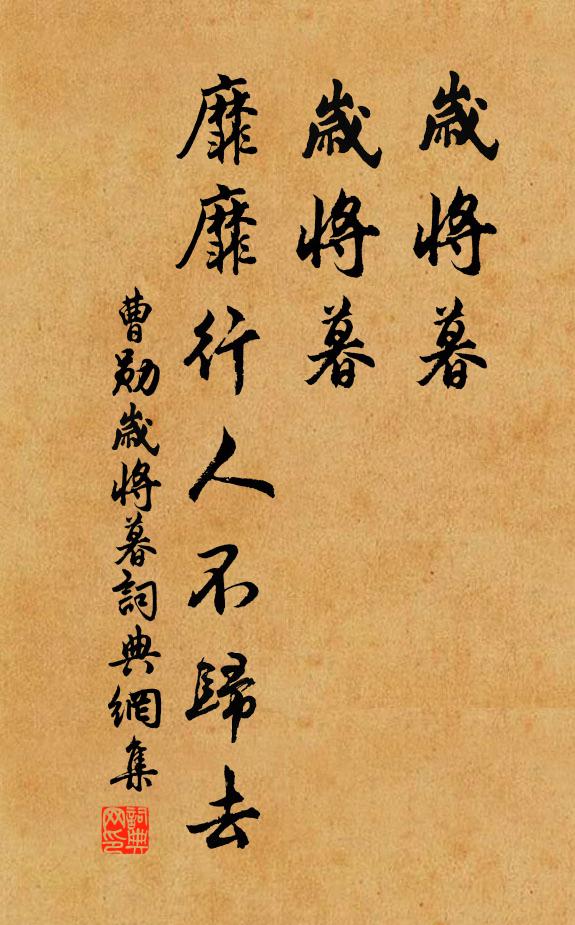 歲將暮
歲將暮
靡靡行人不歸去
曹勛歲將暮詞典網集
詞典網印